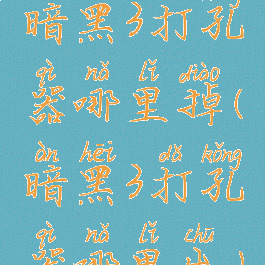 暗黑3打孔
qì nǎ lǐ diào
器哪里掉(
àn hēi dǎ kǒng
暗黑3打孔
qì nǎ lǐ chū
器哪里出)